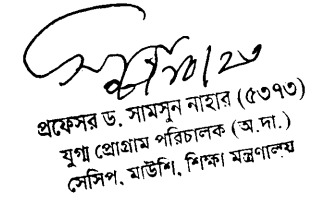 প্রফেসর ড. সামসুন নাহার (৫৩৭৩)
যুগ্ম প্রোগ্রাম পরিচালক (অ.দা.)
সেসিপ, মাউশি, শিক্ষা মন্ত্রণালয়